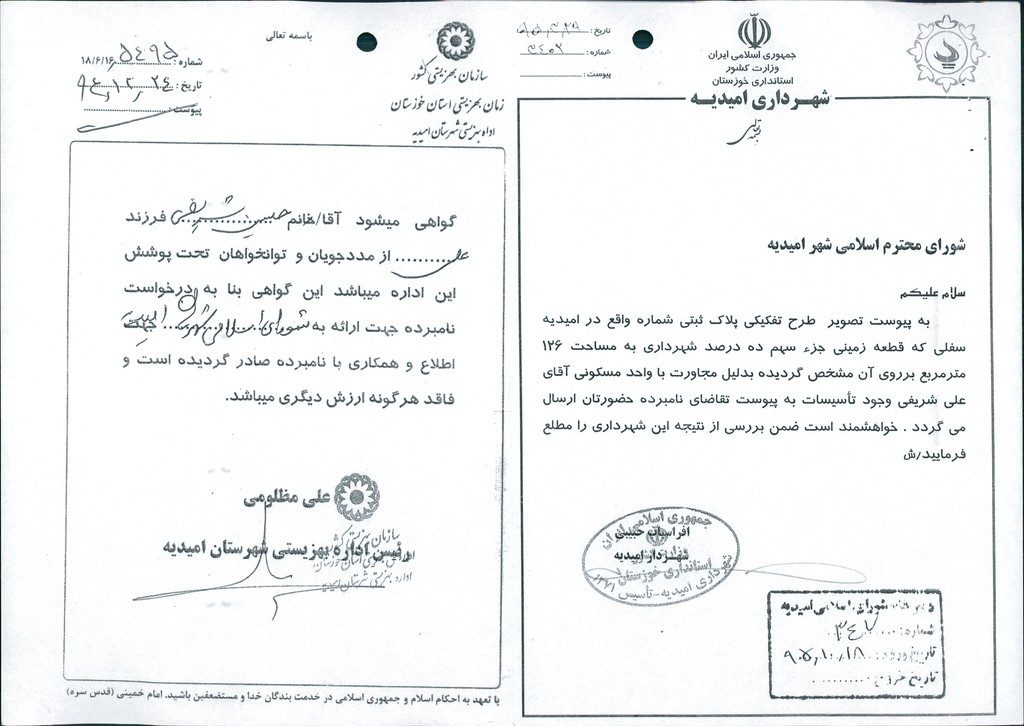 جمهوری اسلامی ایران
وزارت کشور
استانداری خوزستان
شهرداری امیدیه
تاریخ:
شماره:
پیوست:
شورای محترم اسلامی شهر امیدیه
سلام علیکم
به پیوست تصویر طرح تفکیکی پلاک ثبتی شماره واقع در امیدیه
سفلی که قطعه زمینی جزء سهم ده درصد شهرداری به مساحت ۱۲۶
مترمربع برروی آن مشخص گردیده بدلیل مجاورت با واحد مسکونی آقای
علی شریفی وجود تأسیسات به پیوست تقاضای نامبرده حضورتان ارسال
می گردد . خواهشمند است ضمن بررسی از نتیجه این شهرداری را مطلع
فرمایید/ش
افراسیاب حبیبی
شهردار امیدیه
جمهوری اسلامی ایران
وزارت کشور
استانداری خوزستان
شهرداری امیدیه-تأسیس ۱۳۷۱
دبیرخانه شورای اسلامی امیدیه
شماره:
تاریخ ورود: ۹۵/۱۰/۱۸
تاریخ خروج:
باسمه تعالی
سازمان بهزیستی کشور
زمان بهزیستی استان خوزستان
اداره بهزیستی شهرستان امیدیه
شماره: ۵۴۹۵/۱۸/۶/۱۶
تاریخ: ۹۴/۱۲/۲۴
پیوست:
گواهی میشود آقا/خانم حبیب شریفی فرزند
علی از مددجویان و توانخواهان تحت پوشش
این اداره میباشد این گواهی بنا به درخواست
نامبرده جهت ارائه به شورای اسلامی شهر امیدیه جهت
اطلاع و همکاری با نامبرده صادر گردیده است و
فاقد هرگونه ارزش دیگری میباشد.
علی مظلومی
رئیس اداره بهزیستی شهرستان امیدیه
سازمان بهزیستی کشور
اداره بهزیستی شهرستان امیدیه
با تعهد به احکام اسلام و جمهوری اسلامی در خدمت بندگان خدا و مستضعفین باشید. امام خمینی (قدس سره)